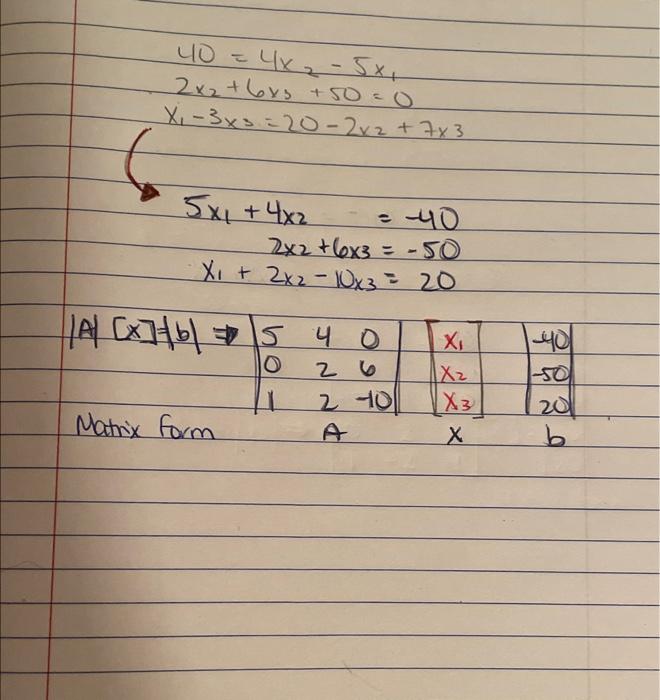 40 = 4x₂ - 5x₁
2x₂ + 6x₃ + 50 = 0
x₁ - 3x₃ = 20 - 2x₂ + 7x₃
5x₁ + 4x₂ = -40
2x₂ + 6x₃ = -50
x₁ + 2x₂ - 10x₃ = 20
|A| [x] = |b| ⇒ |5 4 0| [x₁] |-40|
|0 2 6| [x₂] |-50|
|1 2 -10| [x₃] |20|
Matrix form A x b